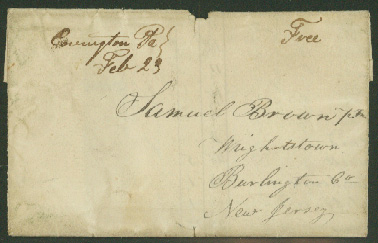 Covington Pa
Free
Feb 23
Samuel Brown
Wrightstown
Burlington Co
New Jersey